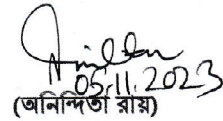 05.11.2023
(অনিন্দিতা রায়)